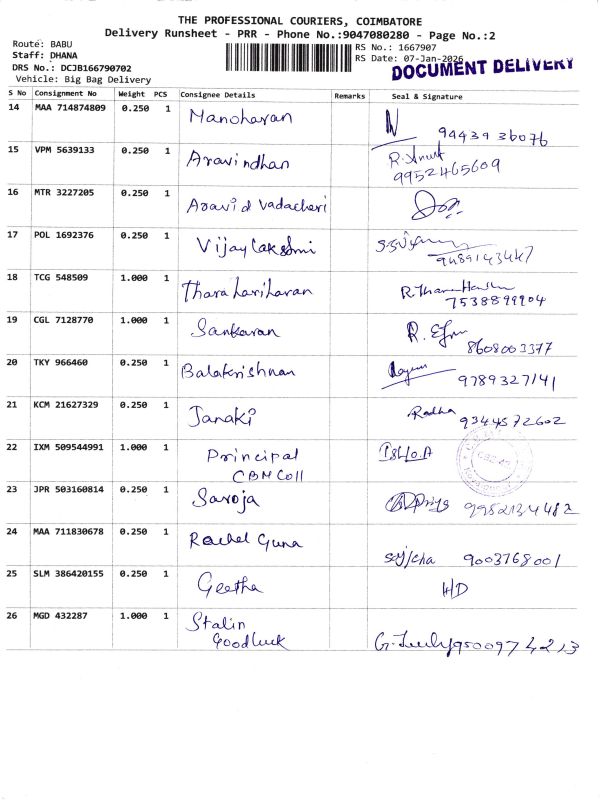 THE PROFESSIONAL COURIERS, COIMBATORE
Delivery Runsheet - PRR - Phone No.:9047080280 - Page No.:2
Route: BABU
Staff: DHANA
DRS No.: DCJB166790702
Vehicle: Big Bag Delivery
RS No.: 1667907
RS Date: 07-Jan-2026
DOCUMENT DELIVERY
S No Consignment No Weight PCS Consignee Details Remarks Seal & Signature
14 MAA 714874809 0.250 1 Manoharan 9443936076
15 VPM 5639133 0.250 1 Aravindhan 9952465609
16 MTR 3227205 0.250 1 Aravid Vadacheri
17 POL 1692376 0.250 1 Vijaylakshmi 9489143447
18 TCG 548509 1.000 1 Tharahariharan 7538899904
19 CGL 7128770 1.000 1 Sankaran 8608003377
20 TKY 966460 0.250 1 Balakrishnan 9789327141
21 KCM 21627329 0.250 1 Janaki Radha 9344572602
22 IXM 509544991 1.000 1 Principal
CBM Coll
23 JPR 503160814 0.250 1 Saroja 9952134482
24 MAA 711830678 0.250 1 Rachel Guna 9003768001
25 SLM 386420155 0.250 1 Geetha HD
26 MGD 432287 1.000 1 Stalin
Goodluck 9500974213